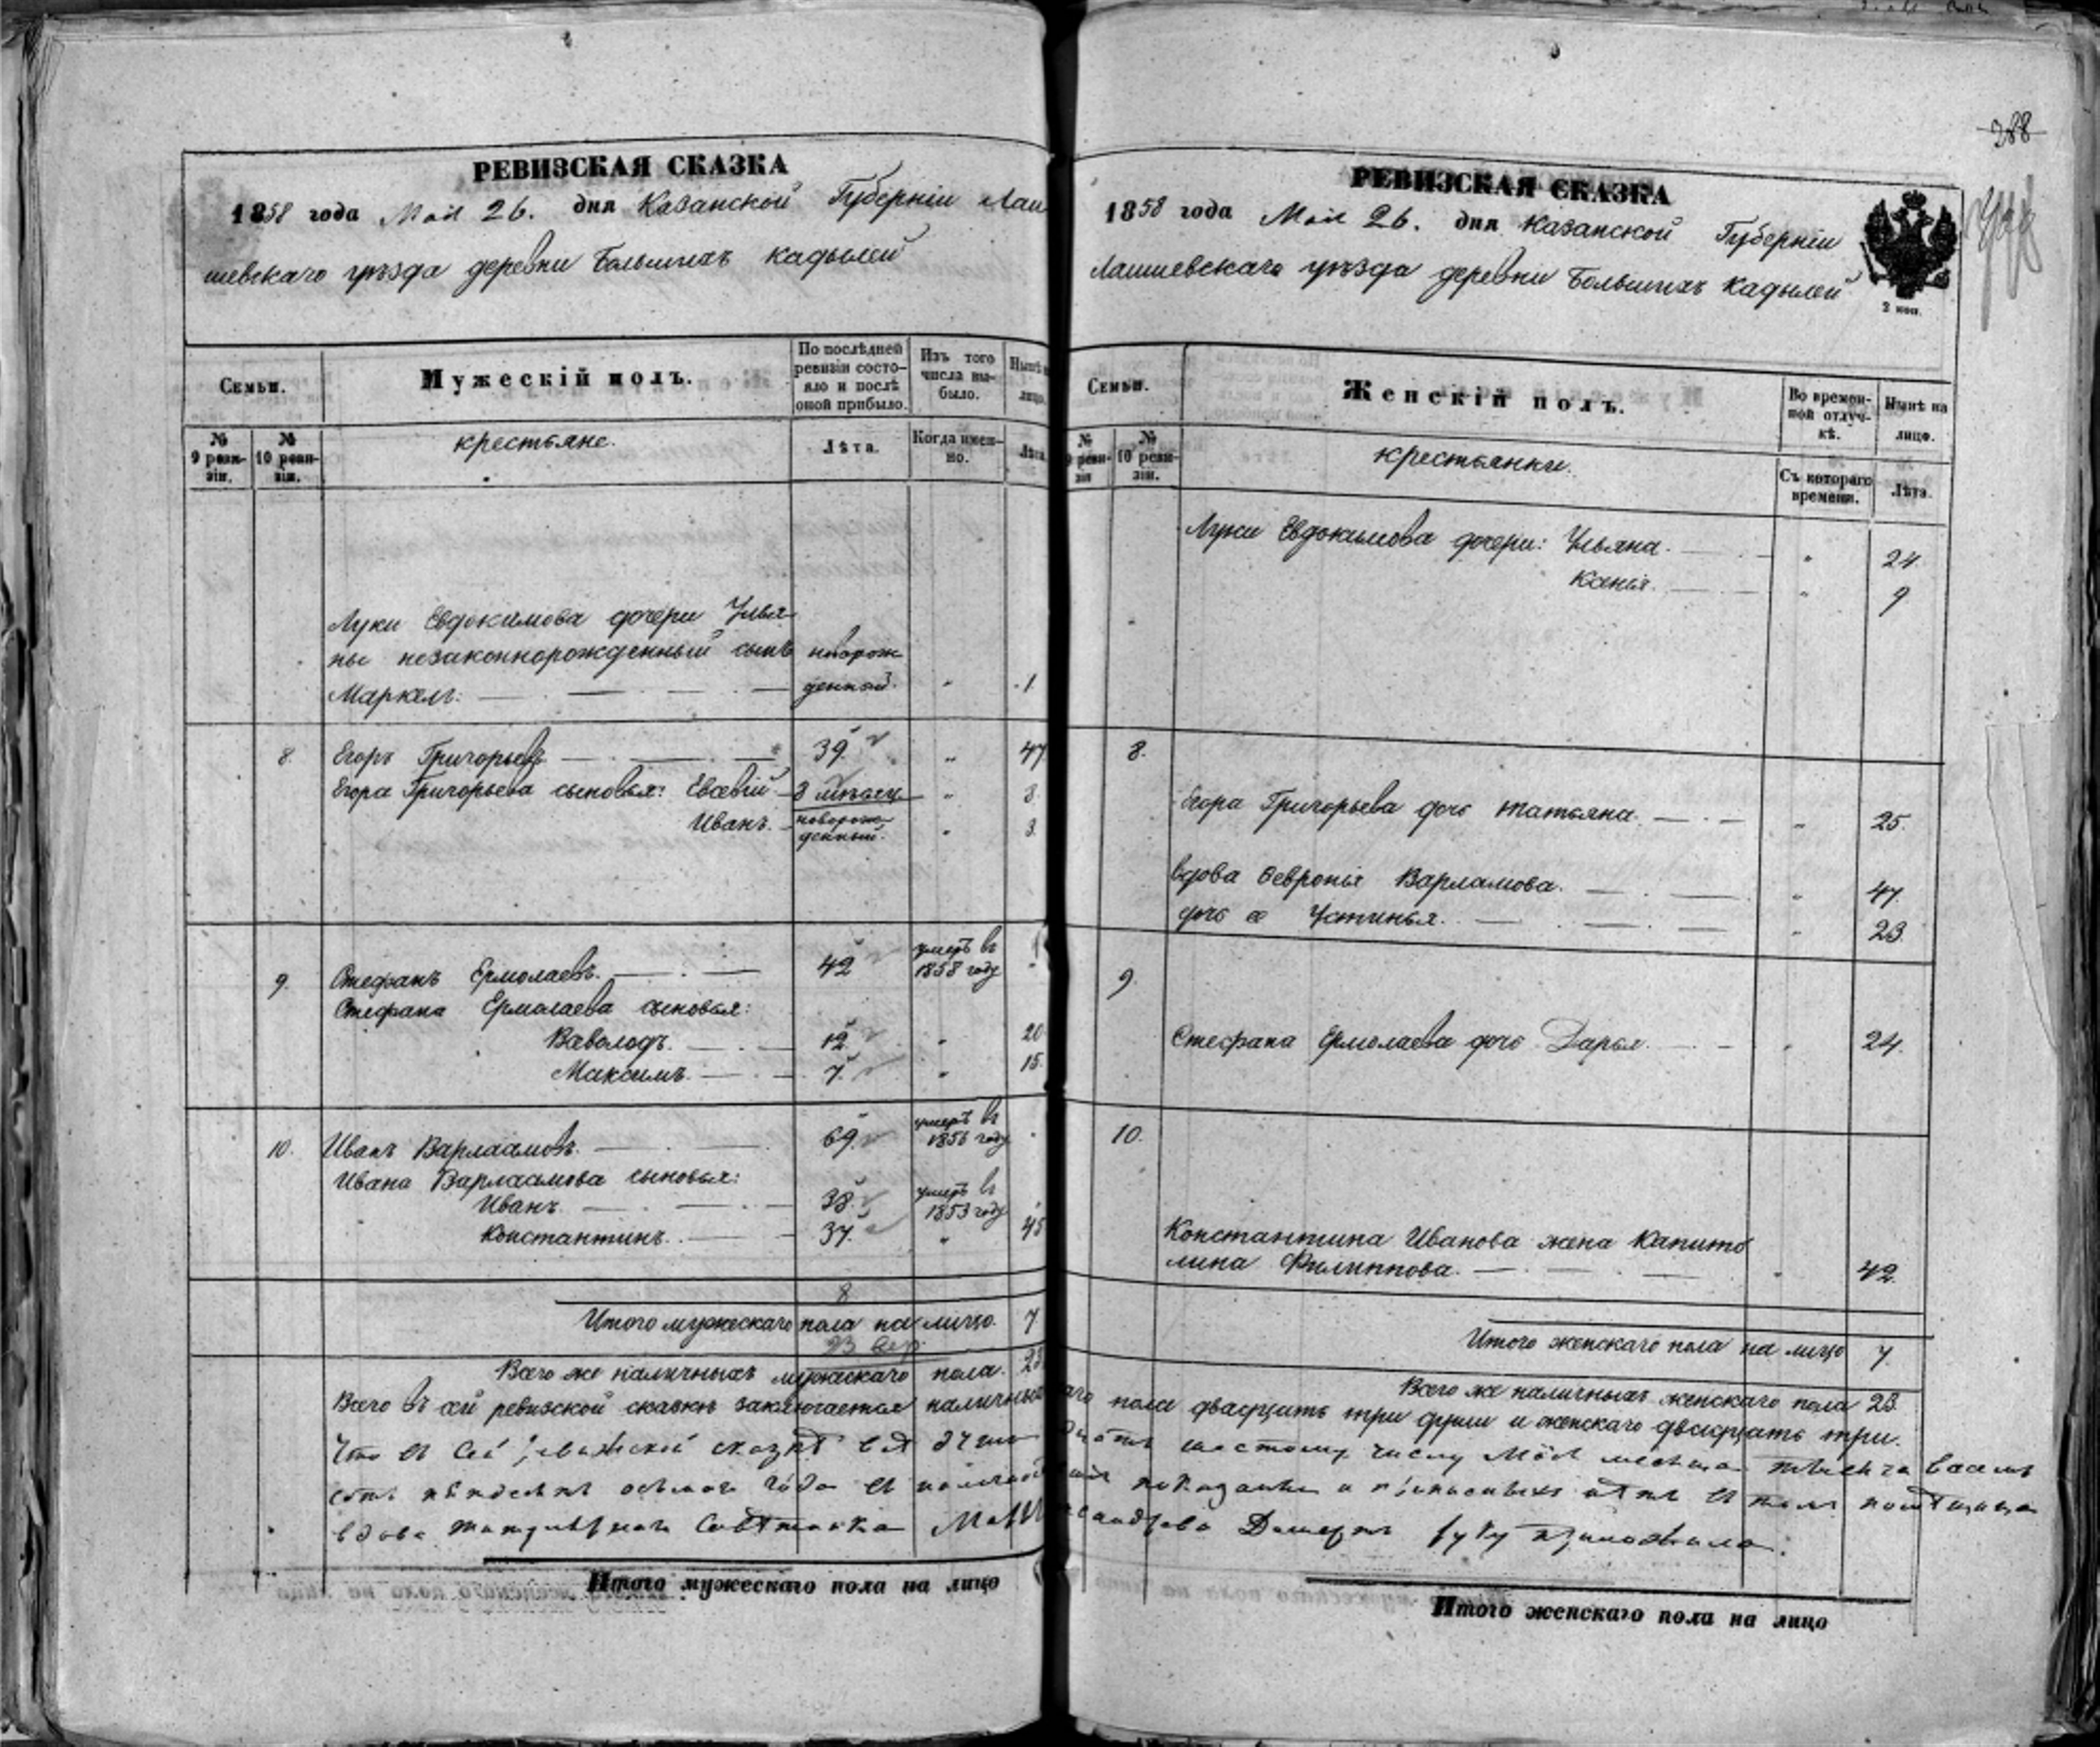 РЕВИЗСКАЯ СКАЗКА
1858 года Мая 26. дня Казанской Губерніи Лаи
шевскаго уѣзда деревни Большихъ Кадылей
Семьи.
Мужескій полъ.
По послѣдней ревизіи состояло и послѣ оной прибыло.
Изъ того числа выбыло.
Нынѣ на лицо.
№ 9 ревизіи.
№ 10 ревизіи.
крестьяне.
Лѣта.
Когда именно.
Лѣта.
Луки Евдокимова дочери Улья
ны незаконнорожденный сынъ новорож
Маркелъ. денный. " 1
8. Егоръ Григорьевъ 39. " 47
Егора Григорьева сыновья: Евсевій 8 мѣсяц " 8.
Иванъ. новорожденный. " 3.
9. Стефанъ Ермолаевъ. 42 умеръ въ 1858 году "
Стефана Ермолаева сыновья:
Всеволодъ. 12. " 20
Максимъ. 7. " 15.
10. Иванъ Варлаамовъ. 69. умеръ въ 1856 году
Ивана Варлаамова сыновья:
Иванъ. 38. умеръ въ 1853 году
Константинъ. 37. " 45
8
Итого мужескаго пола на лицо. 7
23
Всего же наличныхъ мужескаго пола. 23
Всего въ сей ревизской сказкѣ заключается наличныхъ
Что въ сей ревизской сказкѣ
вдова
Итого мужескаго пола на лицо
288
РЕВИЗСКАЯ СКАЗКА
1858 года Мая 26. дня Казанской Губерніи
Лаишевскаго уѣзда деревни Большихъ Кадылей
2 коп.
Семьи.
Женскій полъ.
Во временной отлучкѣ.
Нынѣ на лицо.
№ 9 ревизіи
№ 10 ревизіи.
крестьянки.
Съ котораго времени.
Лѣта.
Луки Евдокимова дочери: Ульяна. " 24.
Ксенія. " 9
8.
Егора Григорьева дочь Татьяна. " 25.
вдова Февронія Варламова. " 47.
дочь ее Устинья. " 23.
9.
Стефана Ермолаева дочь Дарья. " 24.
10.
Константина Иванова жена Капито
лина Филиппова. " 42.
Итого женскаго пола на лицо 7.
Всего же наличныхъ женскаго пола 23.
пола двадцать три души и женскаго двадцать три.
шестому числу Мая месяца
руку приложила.
Итого женскаго пола на лицо